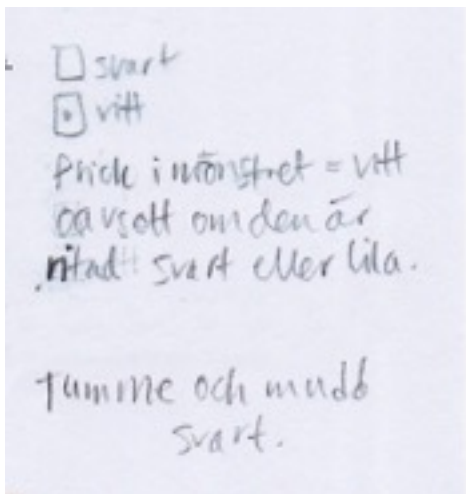 ☐ svart
⊡ vitt
Prick i mönstret = vitt
oavsett om den är
ritad svart eller lila.
Tumme och mudd
svart.